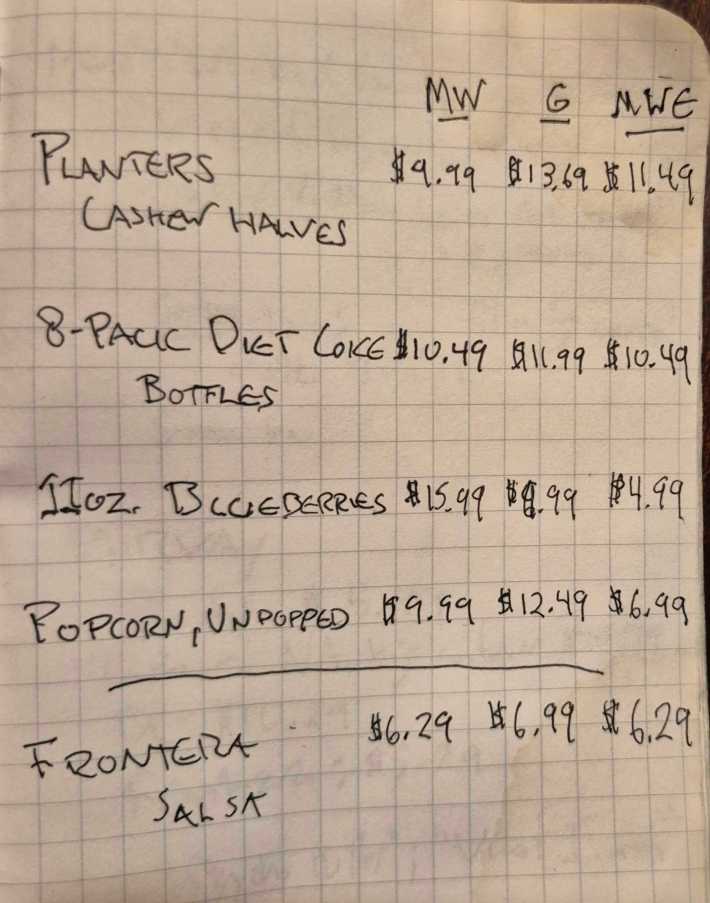 MW G MWE
PLANTERS $9.99 $13.69 $11.49
CASHEW HALVES
8-PACK DIET COKE $10.49 $11.99 $10.49
BOTTLES
11oz. BLUEBERRIES $15.99 $.99 $4.99
POPCORN, UNPOPPED $9.99 $12.49 $6.99
FRONTERA $6.29 $6.99 $6.29
SALSA